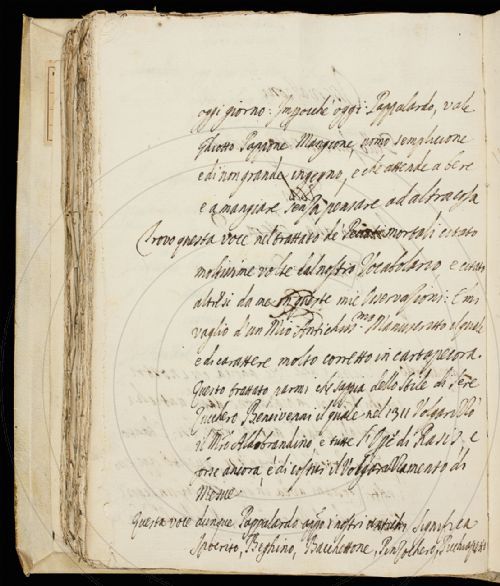 oggi giorno: Imperchè oggi Pappalardo, vale
Ghiotto Pappone Mangione, uomo semplicione
e di non grande ingegno, e che attende a bere
e a mangiare senza pensare ad altra cosa
Trovo questa voce nel trattato de Peccati mortali citato
moltissime volte dal nostro Vocabolario, e citato
altresì da me in queste mie Osservazioni: E mi
vaglio d'un Mio Antichiss.mo Manuscritto il quale
è di carattere molto corretto in cartapecora.
Questo trattato parmi che sappia dello stile di Sere
Zucchero Bensivenni il quale nel 1311 Volgarizzò
il Mro Aldobrandino e tutte l'Ope di Rasis, e
forse ancora, è di costui il Volgarizzamento di
Mesue.
Questa voce dunque Pappalardo appo i nostri Significa
Ipocrito, Beghino, Bacchettone, Pinzochero,